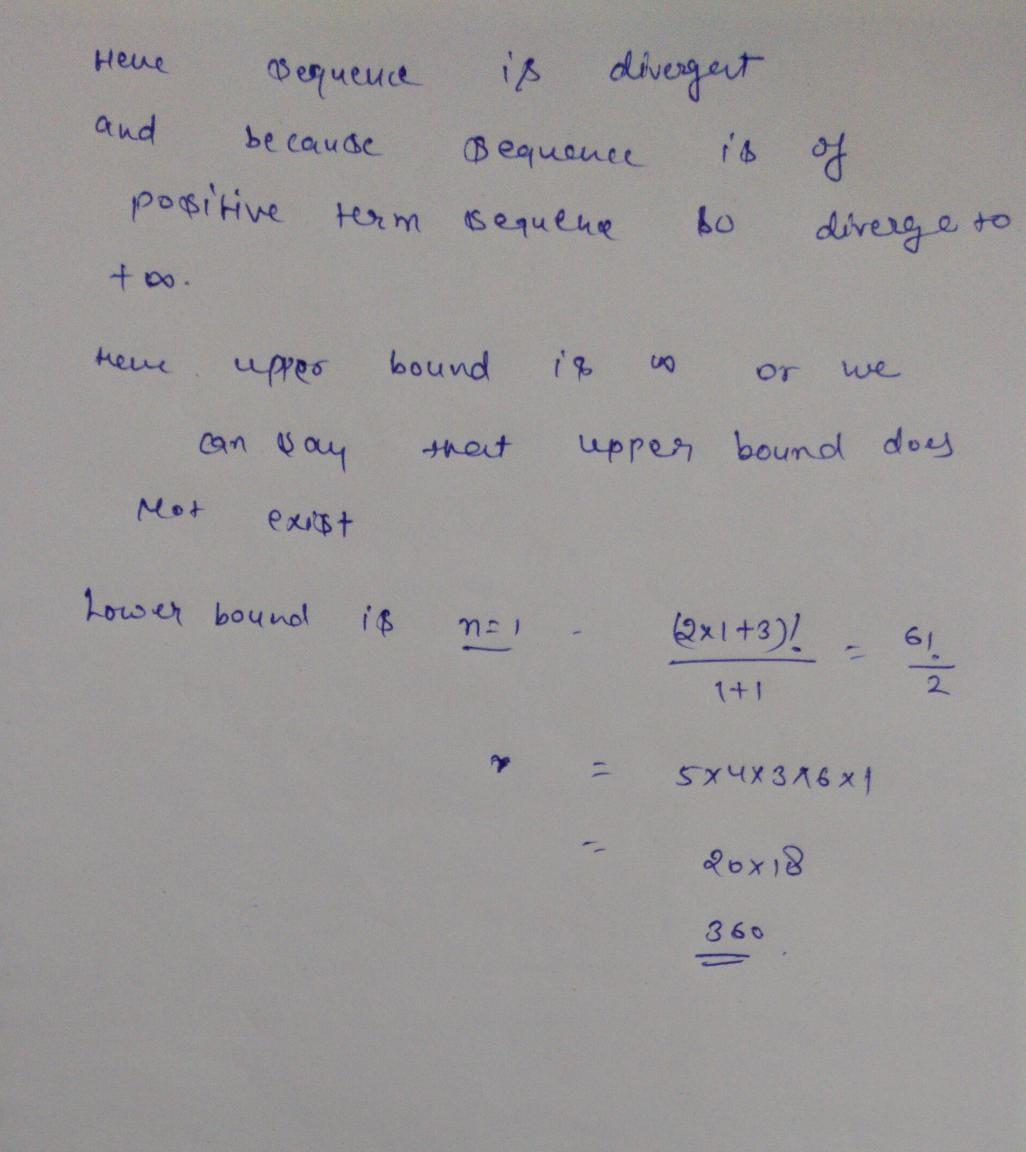 Here sequence is divergent
and because sequence is of
positive term sequence so diverge to
+∞.
Here upper bound is ∞ or we
can say that upper bound does
Not exist
Lower bound is n=1 - (2x1+3)!/1+1 = 6!/2
= 5x4x3x6x1
= 20x18
360.